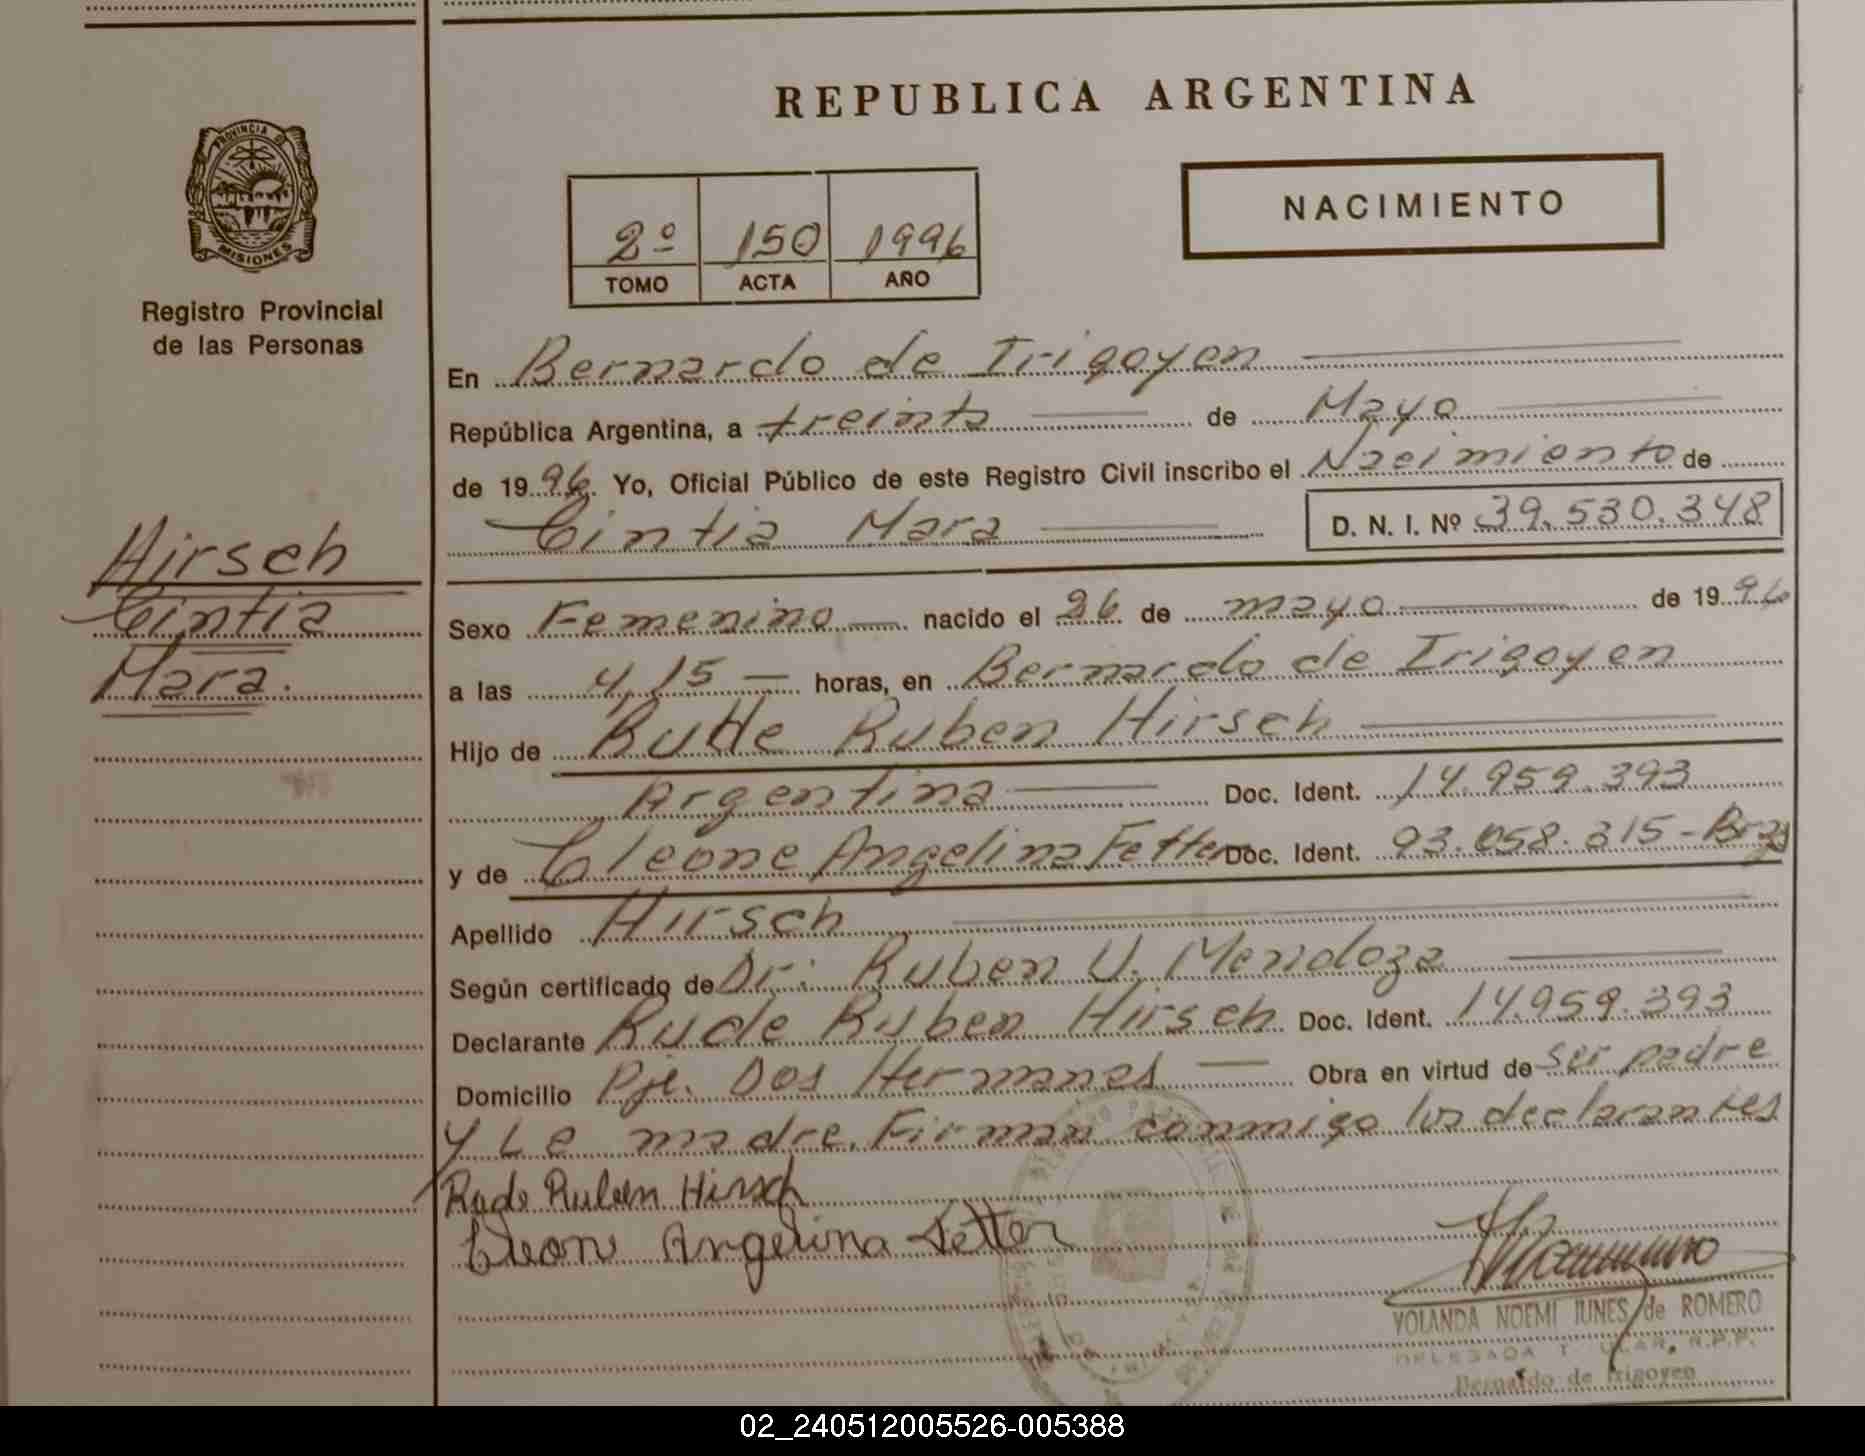 REPUBLICA ARGENTINA
PROVINCIA DE
MISIONES
Registro Provincial
de las Personas
2º 150 1996
TOMO ACTA AÑO
NACIMIENTO
En Bernardo de Irigoyen
República Argentina, a treinta de Mayo
de 1996. Yo, Oficial Público de este Registro Civil inscribo el Nacimiento de
Cintia Mara D. N. I. Nº 39.530.348
Hirsch
Cintia
Mara.
Sexo Femenino nacido el 26 de mayo de 1996
a las 4,15 horas, en Bernardo de Irigoyen
Hijo de Rude Ruben Hirsch
Argentina Doc. Ident. 14.959.393
y de Cleone Angelina Fetter Doc. Ident. 93.058.315 - Bras
Apellido Hirsch
Según certificado de Dr: Ruben U. Mendoza
Declarante Rude Ruben Hirsch Doc. Ident. 14.959.393
Domicilio Pje. Dos Hermanas Obra en virtud de ser padre
y La madre. Firman conmigo los declarantes
Rude Ruben Hirsch
Cleone Angelina Fetter
YOLANDA NOEMI JUNES de ROMERO
DELEGADA TITULAR R.P.P.
Bernardo de Irigoyen
02_240512005526-005388